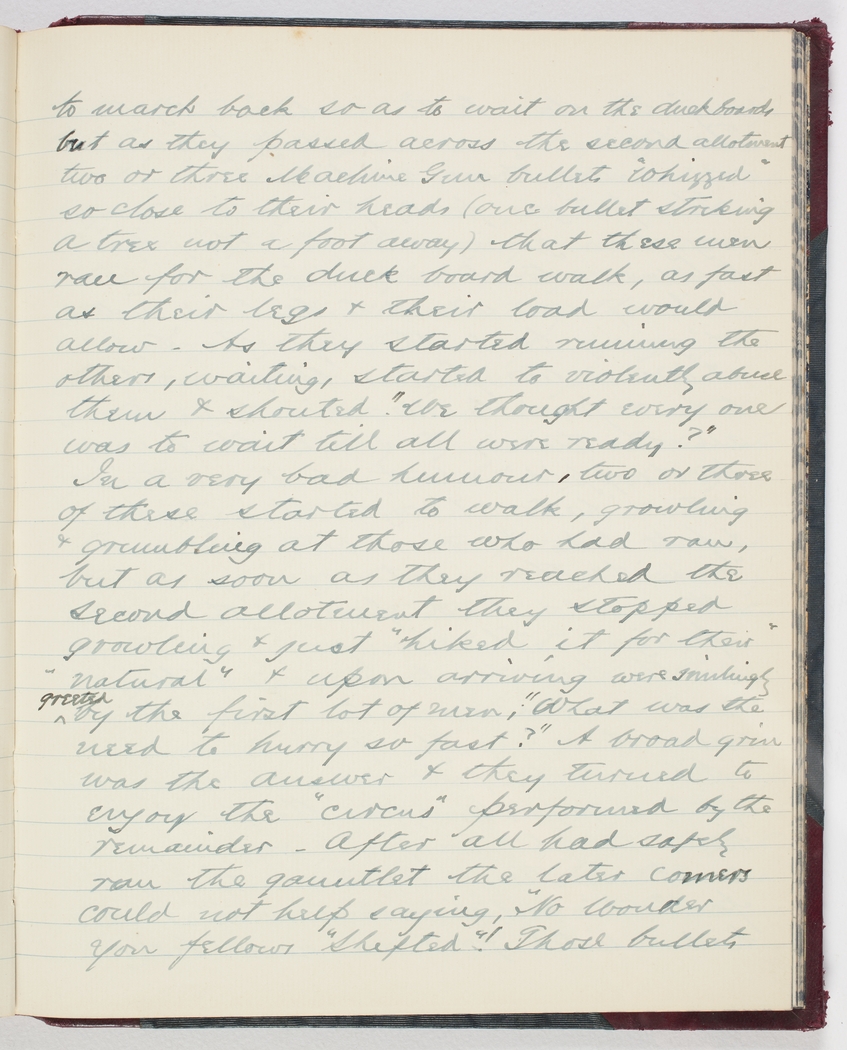 to march back so as to wait on the duckboards
but as they passed across the second allotment
two or three Machine Gun bullets "whizzed"
so close to their heads (one bullet striking
a tree not a foot away) that these men
ran for the duck board walk, as fast
as their legs & their load would
allow - As they started running the
others, waiting, started to violently abuse
them & shouted "We thought every one
was to wait till all were ready?"
In a very bad humour, two or three
of these started to walk, growling
& grumbling at those who had ran,
but as soon as they reached the
second allotment they stopped
growling & just "hiked it for their"
"natural" & upon arriving were smilingly
greeted by the first lot of men, "What was the
need to hurry so fast?" A broad grin
was the answer & they turned to
enjoy the "circus" performed by the
remainder - After all had safely
ran the gauntlet the later comers
could not help saying, "No wonder
you fellows "shifted"! Those bullets